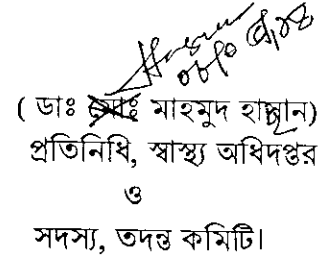 ( ডাঃ মাহমুদ হাসান)
প্রতিনিধি, স্বাস্থ্য অধিদপ্তর
ও
সদস্য, তদন্ত কমিটি।